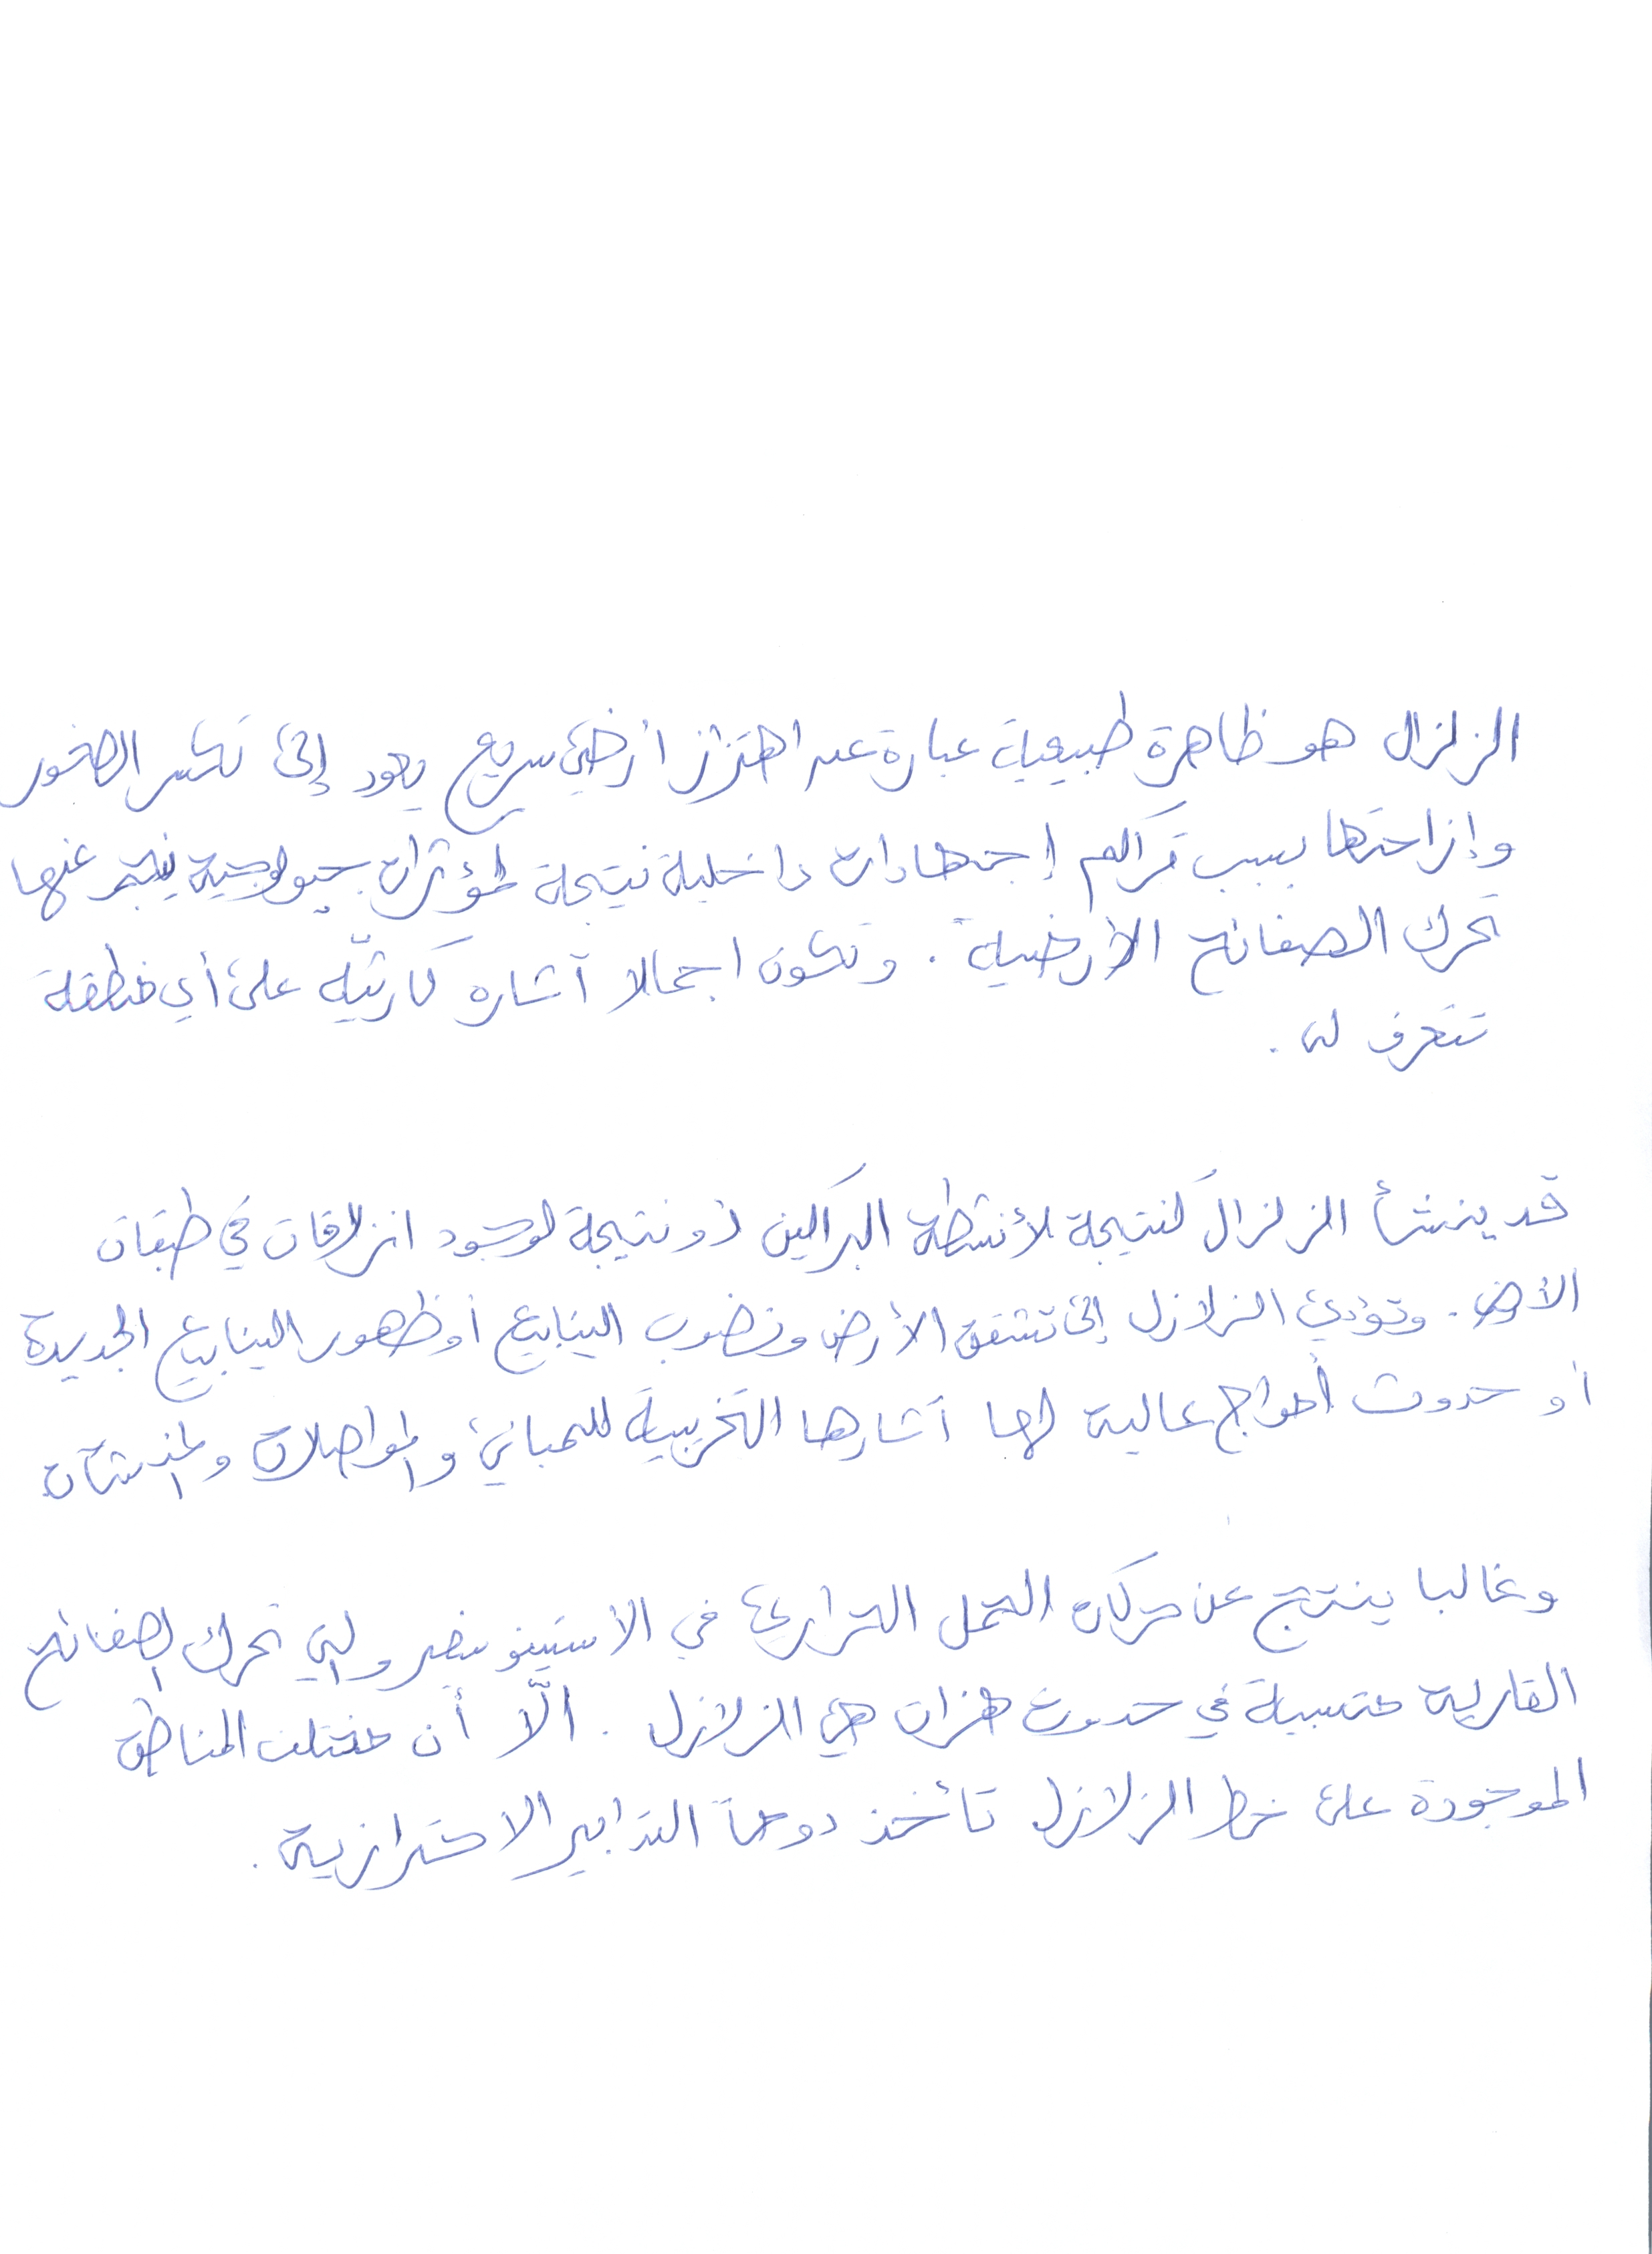 الزلزال هو ظاهرة طبيعية عبارة عن اهتزاز أرضي سريع يعود إلى تكسر الصخور
وإزاحتها بسبب تراكم إجتهادات داخلية نتيجة لمؤثرات جيولوجية ينجم عنها
تحرك الصفائح الأرضية. وتكون اجمالا آثاره كارثيّة على أي منطقة
تتعرض له.
قد ينشأ الزلزال كنتيجة لأنشطة البراكين أو نتيجة لوجود انزلاقات في طبقات
الأرض. وتؤدي الزلازل إلى تشقق الأرض ونضوب الينابيع أو ظهور الينابيع الجديدة
أو حدوث أمواج عالية لها آثارها التخريبية للمباني والمواصلات والمنشآت
وغالبا ينتج عن حركات الحمل الحراري في الاستينوسفير والتي تحرك الصفائح
القارية متسببة في حدوث هزات هي الزلازل. الّا أن مختلف المناطق
الموجودة على خط الزلازل تأخذ دوماً التدابير الاحترازية.